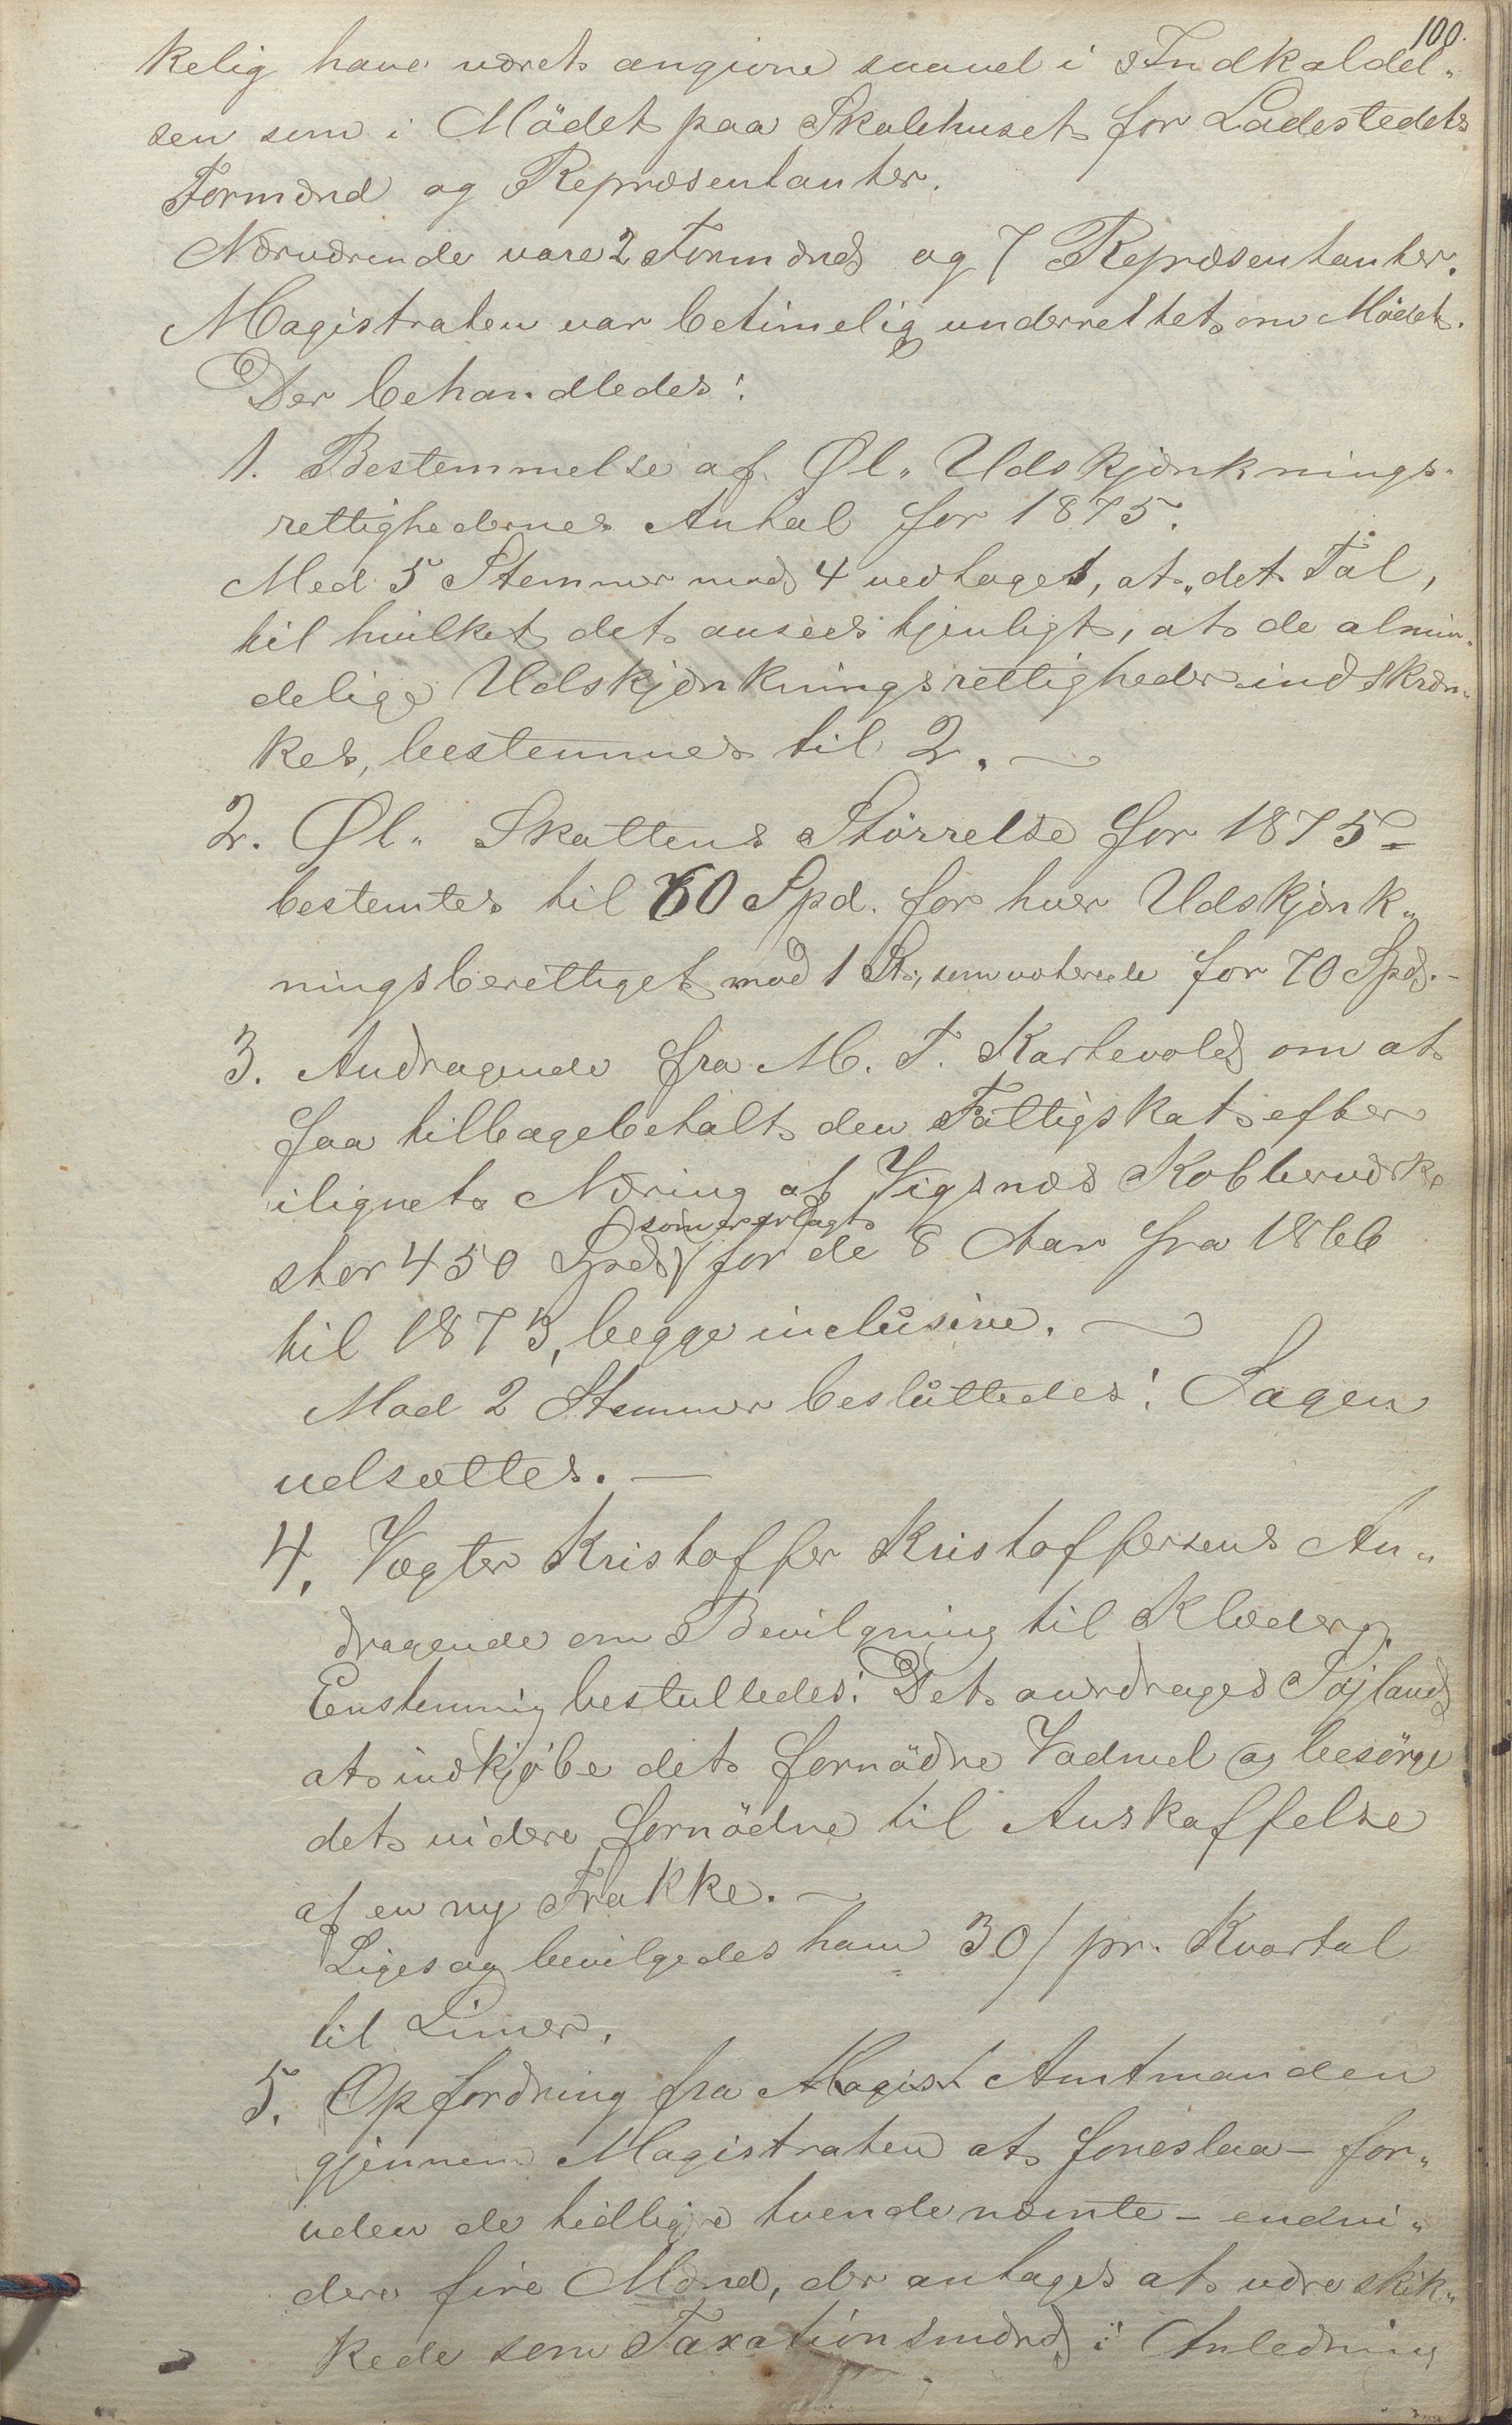 100.
kelig have været angivne saavel i Indkaldel„
sen som i Mödet paa Skolehuset for Ladestedets
Formænd og Repræsentanter.
Nærværende vare 2 Formænd og 7 Repræsentanter.
Magistraten var betimelig underrettet om Mödet.
Der behandledes:
1. Bestemmelse af Øl„ Udskjænknings„
rettighedernes Antal for 1875.
Med 5 Stemmer mod 4 vedtoges, at „det Tal,
til hvilket det ansees tjenligt, at de almin„
delige Udskjænkningsrettigheder indskræn„
kes, bestemmes til 2. —
2. Øl„ Skattens Störrelse for 1875 =
bestemtes til 60 Spd. for hver Udskjænk„
ningsberettiget mod 1 St., som voterede for 70 Spd. –
3. Andragende fra M. T. Kartevold om at
faa tilbagebetalt den Fattigskat efter
ilignet Næring af Vigsnæs Kobberværk
som er erlagt
stor 450 Spd for de 8 Aar fra 1866
til 1873, begge inclusive. —
Mod 2 Stemmer besluttedes: Sagen
udsættes. —
4. Vægter Kristoffer Kristoffersens An„
dragende om Bevilgning til Klæder.
Enstemmig bestulledes: Det anrdrages Söjland
at indkjøbe det fornödne Vadmel og besörge
det videre fornödne til Anskaffelse
af en ny Frakke. —
Ligesag bevilgedes ham 30/ pr. Kvartal
til Limer.
5. Opfordring fra Magist Amtmanden
gjennem Magistraten at foreslaa – for„
uden de tidligre tvende nævnte – endvi„
dere fire Mænd, der antages at være skik„
kede som Taxationsmænd i Anledning